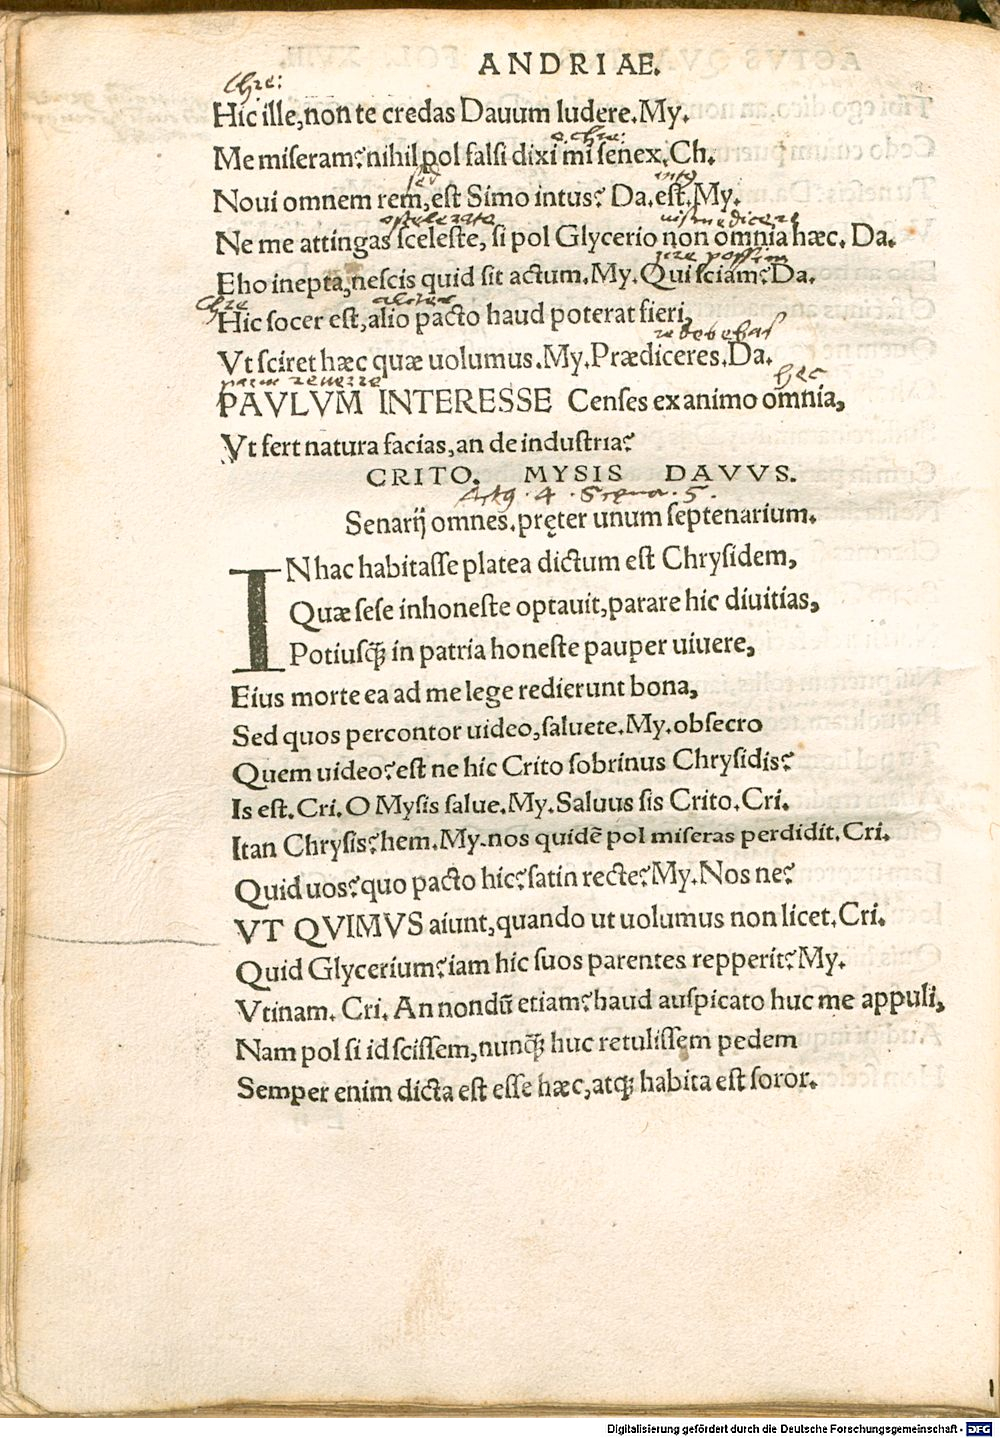 ANDRIAE.
Chre:
Hic ille, non te credas Dauum ludere. My.
o chre:
Me miseram? nihil pol falsi dixi mi senex. Ch.
sed intus
Noui omnem rem, est Simo intus? Da. est. My.
o scelerate
Ne me attingas sceleste, si pol Glycerio non omnia hæc. Da.
Eho inepta, nescis quid sit actum. My. Qui sciam? Da.
Chre
Hic socer est, alio pacto haud poterat fieri,
Vt sciret hæc quæ uolumus. My. Prædiceres. Da.
hec
PAVLVM INTERESSE Censes ex animo omnia,
Vt fert natura facias, an de industria?
CRITO. MYSIS DAVVS.
Actq. 4. Scena. 5.
Senarij omnes. pręter unum septenarium.
IN hac habitasse platea dictum est Chrysidem,
Quæ sese inhoneste optauit, parare hic diuitias,
Potiusq̃ in patria honeste pauper uiuere,
Eius morte ea ad me lege redierunt bona,
Sed quos percontor uideo, saluete. My. obsecro
Quem uideo? est ne hic Crito sobrinus Chrysidis?
Is est. Cri. O Mysis salue. My. Saluus sis Crito. Cri.
Itan Chrysis? hem. My. nos quidē pol miseras perdidit. Cri.
Quid uos? quo pacto hic? satin recte? My. Nos ne?
VT QVIMVS aiunt, quando ut uolumus non licet. Cri.
Quid Glycerium? iam hic suos parentes repperit? My.
Vtinam. Cri. An nondū etiam? haud auspicato huc me appuli,
Nam pol si id scissem, nunq̃ huc retulissem pedem
Semper enim dicta est esse hæc, atq; habita est soror.
Digitalisierung gefördert durch die Deutsche Forschungsgemeinschaft - DFG